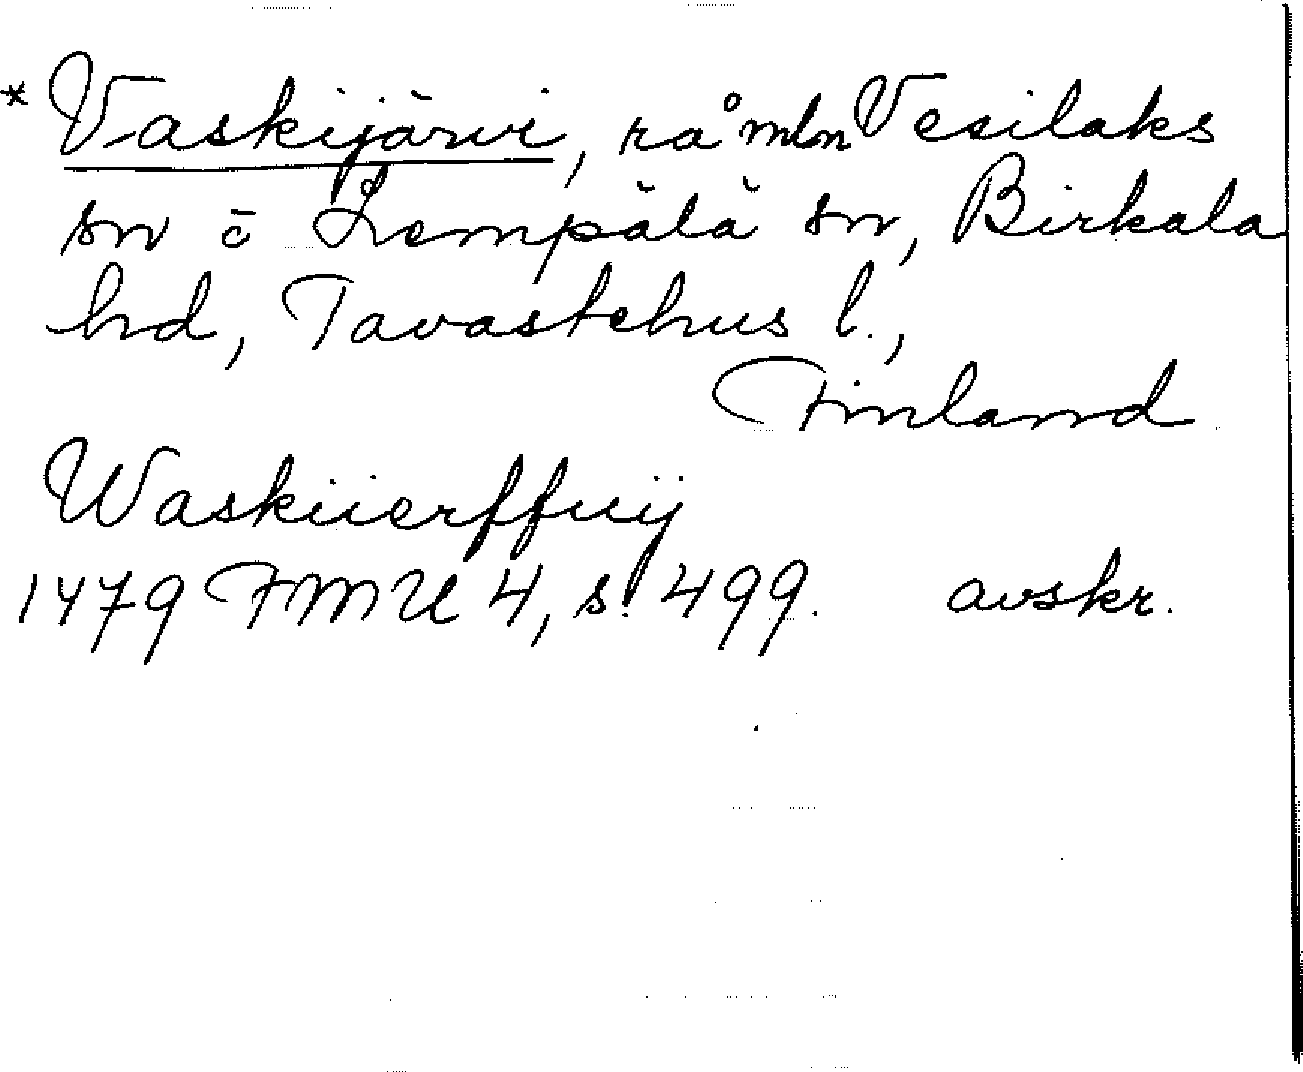 * Vaskijärvi, rå mln Vesilaks
sn c̄ Lempälä sn, Birkala
hd, Tavastehus l.,
Finland
Waskiierffuij
1479 FMU 4, s. 499. avskr.